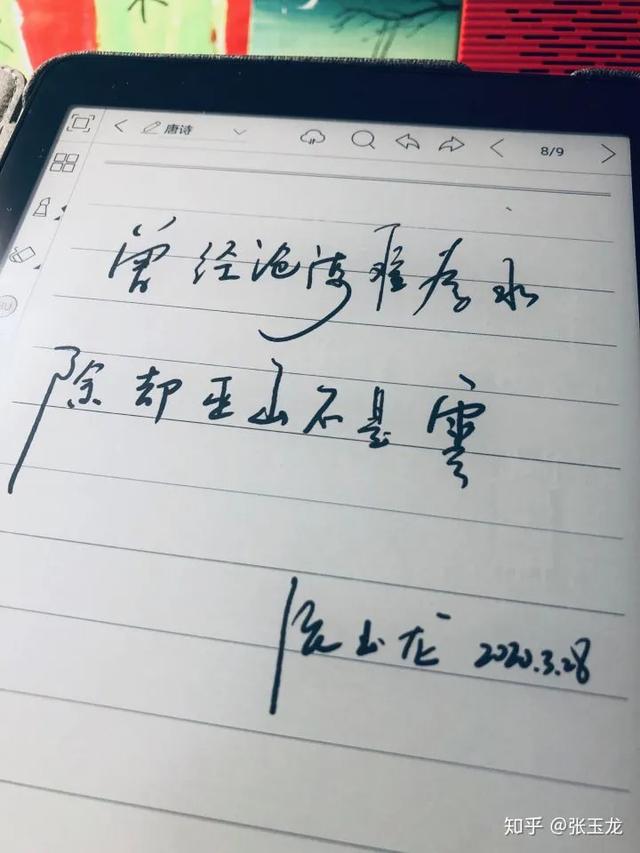 唐诗 8/9
曾经沧海难為水
除却巫山不是雲
张玉龙 2020.3.28
知乎 @张玉龙